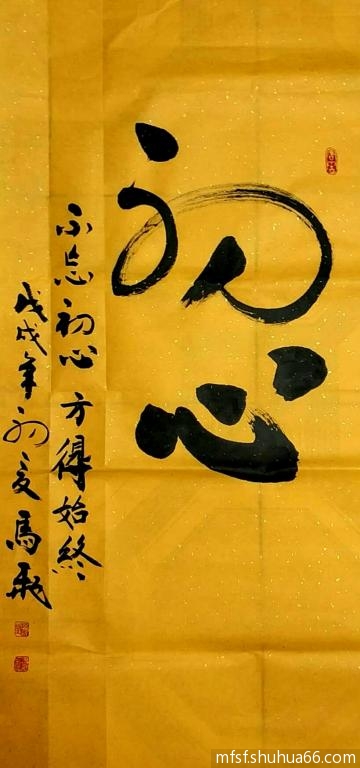 初心
不忘初心方得始終
戊戌年初夏馬飛
mfsf.shuhua66.com